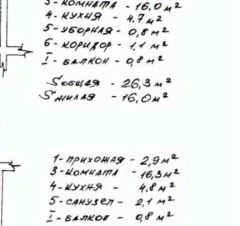 3-КОМНАТА - 16,0 м²
4-КУХНЯ - 4.7 м²
5-УБОРНАЯ - 0,8 м²
6-КОРИДОР - 1,1 м²
I-БАЛКОН - 0,8 м²
Sобщая - 26,3 м²
Sжилая - 16,0 м²
1-ПРИХОЖАЯ - 2,9 м²
3-КОМНАТА - 16,3 м²
4-КУХНЯ - 4.8 м²
5-САНУЗЕЛ - 2,1 м²
I-БАЛКОН - 0,8 м²